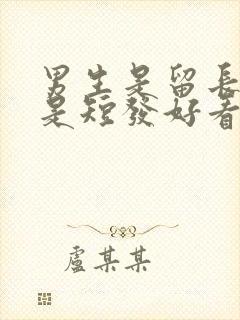 男生是留長
是短發好看
盧某某